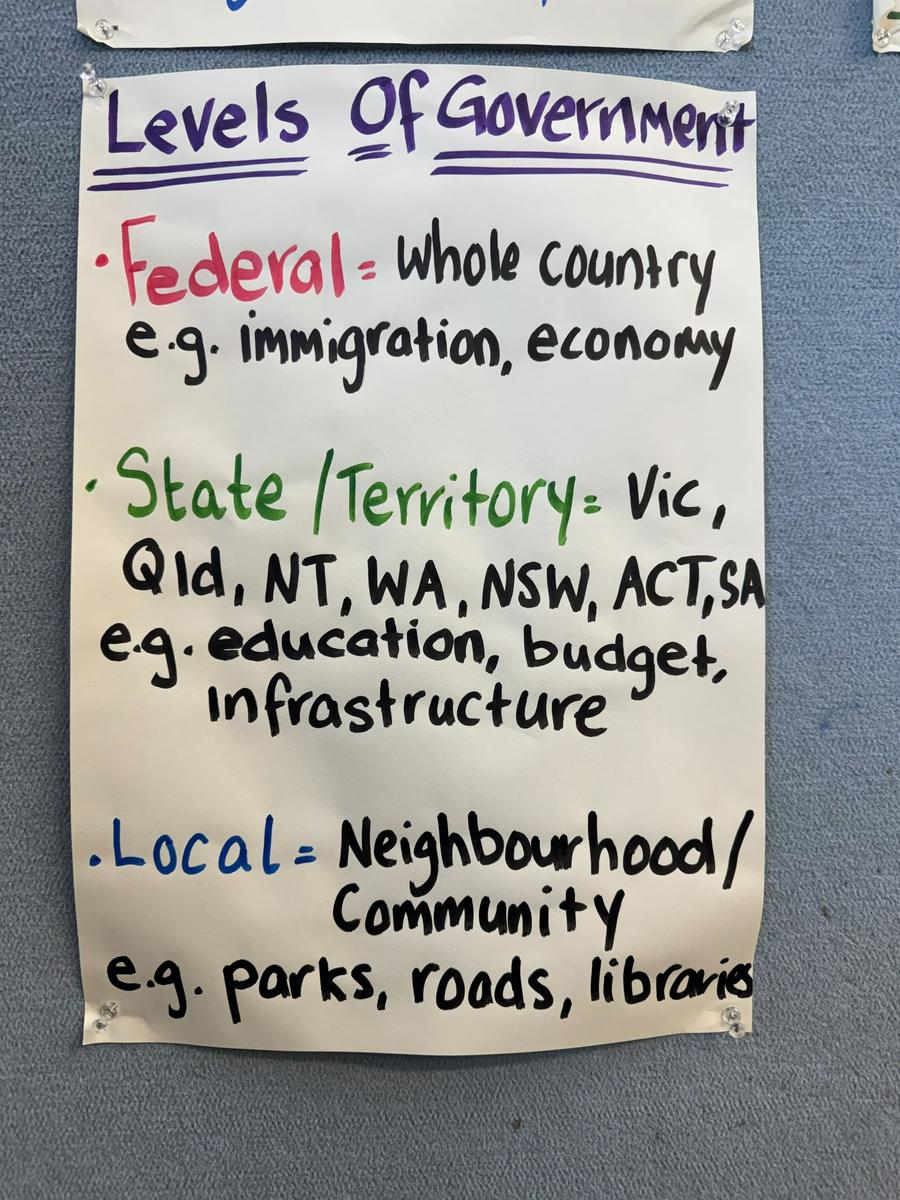 Levels Of Government
• Federal = Whole country
e.g. immigration, economy
• State / Territory = Vic,
Qld, NT, WA, NSW, ACT, SA
e.g. education, budget,
infrastructure
• Local = Neighbourhood/
Community
e.g. parks, roads, libraries